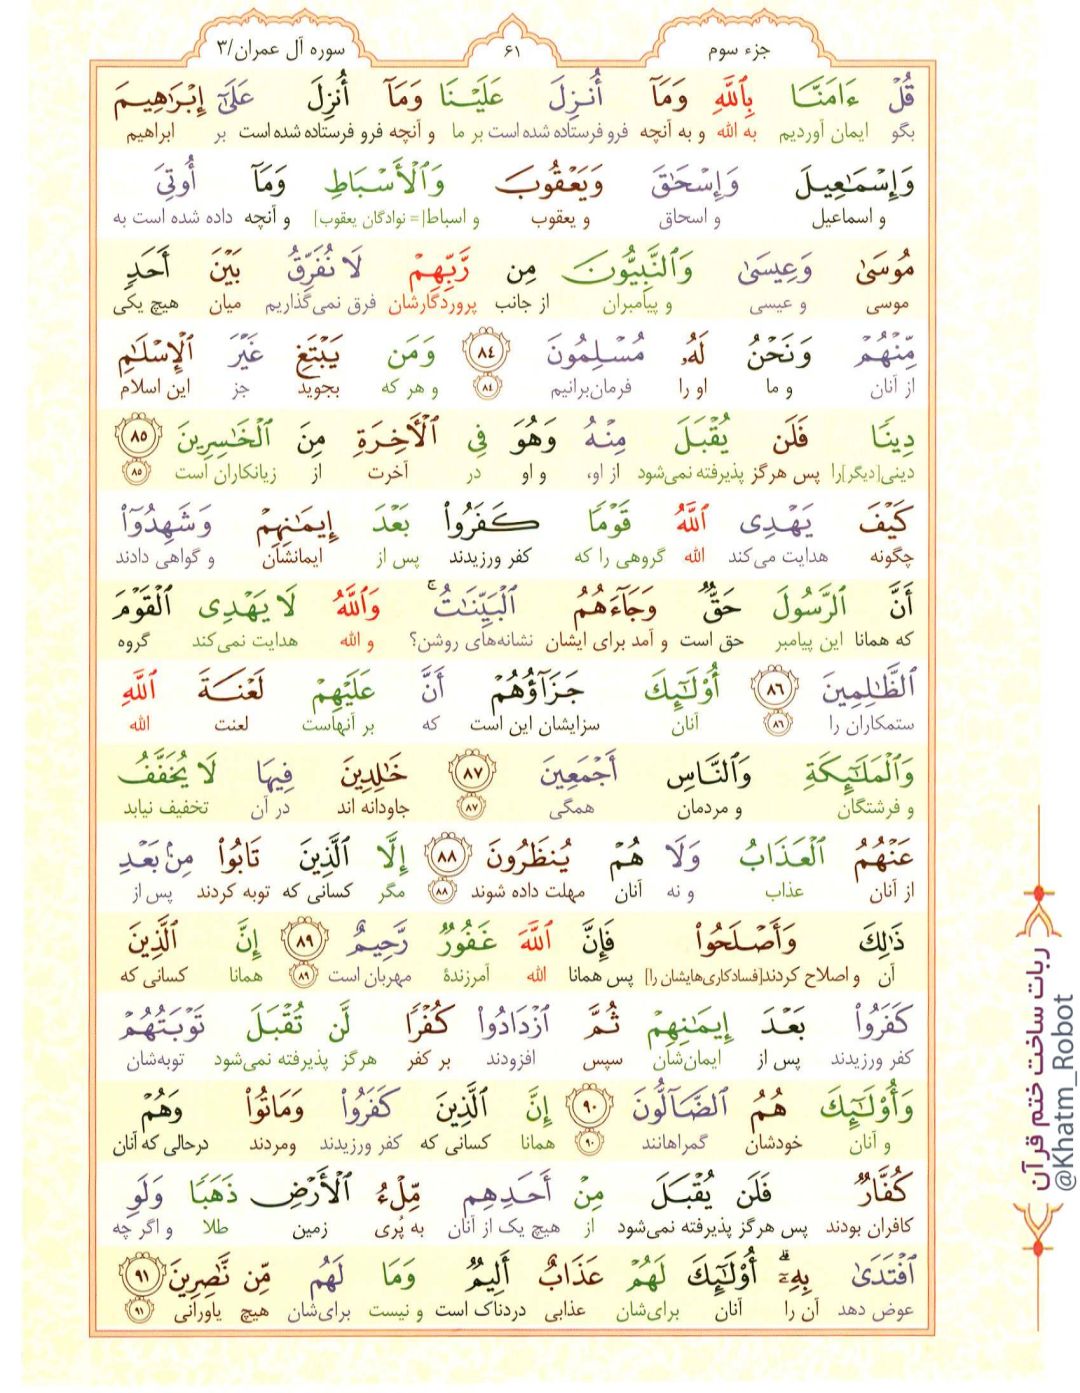 جزء سوم
٦١
سوره آل عمران/٣
قُلْ ءَامَنَّا بِٱللَّهِ وَمَآ أُنزِلَ عَلَيْنَا وَمَآ أُنزِلَ عَلَىٰٓ إِبْرَٰهِيمَ
بگو ایمان آوردیم به الله و به آنچه فرو فرستاده شده است بر ما و آنچه فرو فرستاده شده است بر ابراهیم
وَإِسْمَٰعِيلَ وَإِسْحَٰقَ وَيَعْقُوبَ وَٱلْأَسْبَاطِ وَمَآ أُوتِىَ
و اسماعیل و اسحاق و یعقوب و اسباط[= نوادگان یعقوب] و آنچه داده شده است به
مُوسَىٰ وَعِيسَىٰ وَٱلنَّبِيُّونَ مِن رَّبِّهِمْ لَا نُفَرِّقُ بَيْنَ أَحَدٍ
موسی و عیسی و پیامبران از جانب پروردگارشان فرق نمی‌گذاریم میان هیچ یکی
مِّنْهُمْ وَنَحْنُ لَهُۥ مُسْلِمُونَ ٨٤ وَمَن يَبْتَغِ غَيْرَ ٱلْإِسْلَٰمِ
از آنان و ما او را فرمان‌برانیم ٨٤ و هر که بجوید جز این اسلام
دِينًا فَلَن يُقْبَلَ مِنْهُ وَهُوَ فِى ٱلْأَخِرَةِ مِنَ ٱلْخَٰسِرِينَ ٨٥
دینی[دیگر]را پس هرگز پذیرفته نمی‌شود از او، و او در آخرت از زیانکاران است ٨٥
كَيْفَ يَهْدِى ٱللَّهُ قَوْمًا كَفَرُوا۟ بَعْدَ إِيمَٰنِهِمْ وَشَهِدُوٓا۟
چگونه هدایت می‌کند الله گروهی را که کفر ورزیدند پس از ایمانشان و گواهی دادند
أَنَّ ٱلرَّسُولَ حَقٌّ وَجَآءَهُمُ ٱلْبَيِّنَٰتُ ۚ وَٱللَّهُ لَا يَهْدِى ٱلْقَوْمَ
که همانا این پیامبر حق است و آمد برای ایشان نشانه‌های روشن؟ و الله هدایت نمی‌کند گروه
ٱلظَّٰلِمِينَ ٨٦ أُو۟لَٰٓئِكَ جَزَآؤُهُمْ أَنَّ عَلَيْهِمْ لَعْنَةَ ٱللَّهِ
ستمکاران را ٨٦ آنان سزایشان این است که بر آنهاست لعنت الله
وَٱلْمَلَٰٓئِكَةِ وَٱلنَّاسِ أَجْمَعِينَ ٨٧ خَٰلِدِينَ فِيهَا لَا يُخَفَّفُ
و فرشتگان و مردمان همگی ٨٧ جاودانه اند در آن تخفیف نیابد
عَنْهُمُ ٱلْعَذَابُ وَلَا هُمْ يُنظَرُونَ ٨٨ إِلَّا ٱلَّذِينَ تَابُوا۟ مِنۢ بَعْدِ
از آنان عذاب و نه آنان مهلت داده شوند ٨٨ مگر کسانی که توبه کردند پس از
ذَٰلِكَ وَأَصْلَحُوا۟ فَإِنَّ ٱللَّهَ غَفُورٌ رَّحِيمٌ ٨٩ إِنَّ ٱلَّذِينَ
آن و اصلاح کردند[فسادکاری‌هایشان را] پس همانا الله آمرزندهٔ مهربان است ٨٩ همانا کسانی که
كَفَرُوا۟ بَعْدَ إِيمَٰنِهِمْ ثُمَّ ٱزْدَادُوا۟ كُفْرًا لَّن تُقْبَلَ تَوْبَتُهُمْ
کفر ورزیدند پس از ایمان‌شان سپس افزودند بر کفر هرگز پذیرفته نمی‌شود توبه‌شان
وَأُو۟لَٰٓئِكَ هُمُ ٱلضَّآلُّونَ ٩٠ إِنَّ ٱلَّذِينَ كَفَرُوا۟ وَمَاتُوا۟ وَهُمْ
و آنان خودشان گمراهانند ٩٠ همانا کسانی که کفر ورزیدند ومردند درحالی که آنان
كُفَّارٌ فَلَن يُقْبَلَ مِنْ أَحَدِهِم مِّلْءُ ٱلْأَرْضِ ذَهَبًا وَلَوِ
کافران بودند پس هرگز پذیرفته نمی‌شود از هیچ یک از آنان به پُری زمین طلا و اگر چه
ٱفْتَدَىٰ بِهِۦٓ ۗ أُو۟لَٰٓئِكَ لَهُمْ عَذَابٌ أَلِيمٌ وَمَا لَهُم مِّن نَّٰصِرِينَ ٩١
عوض دهد آن را آنان برای‌شان عذابی دردناک است و نیست برای‌شان هیچ یاورانی ٩١
ربات ساخت ختم قرآن
@Khatm_Robot